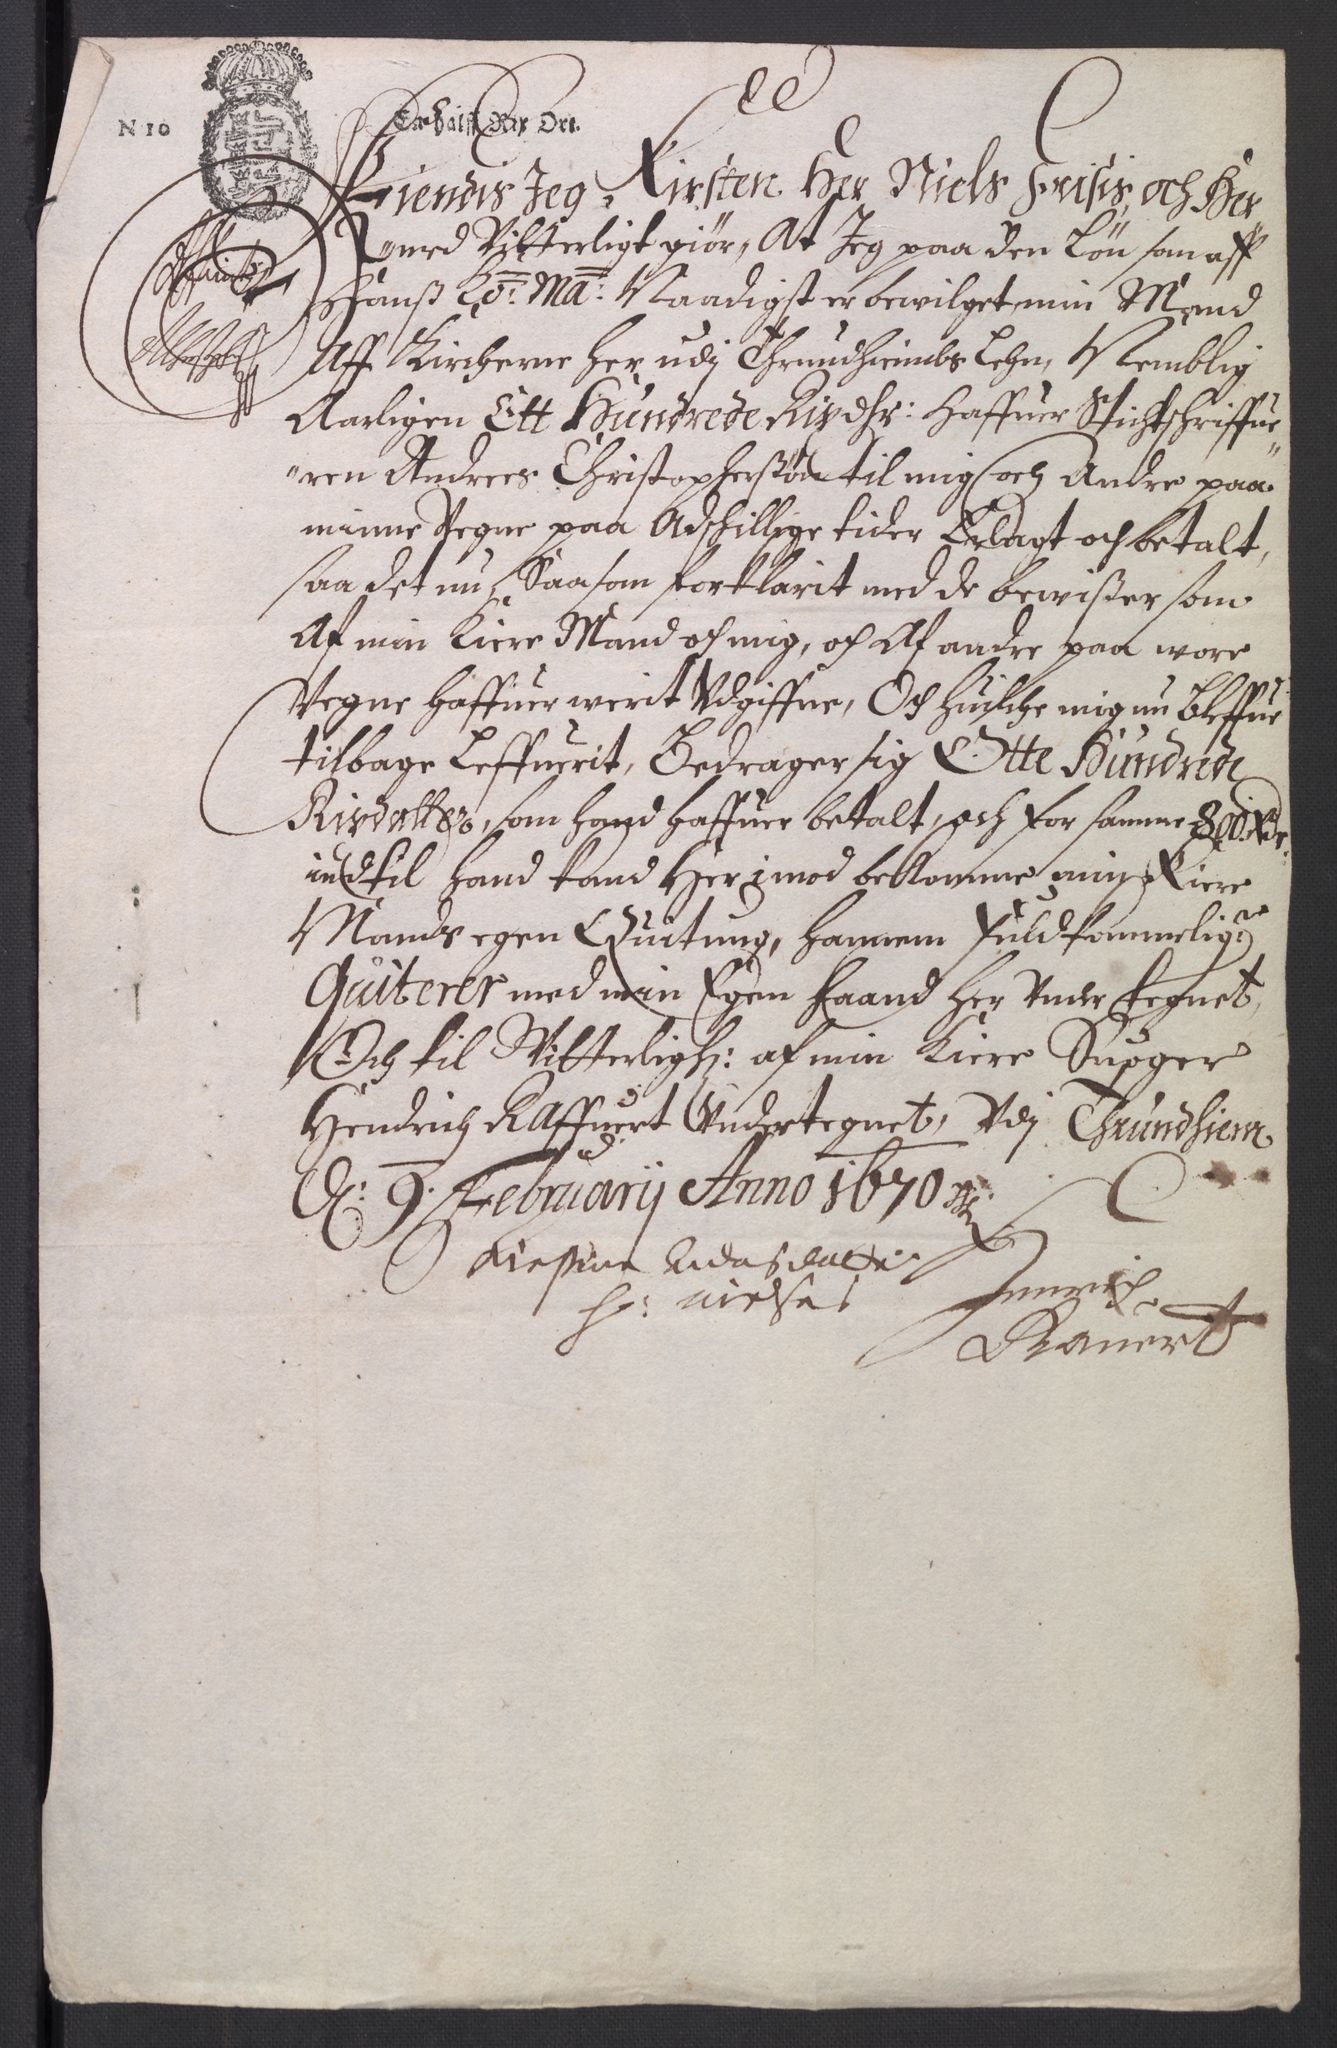 N 10
En halff Rix Ort.
Kiendis Jeg, Kirsten Her Niels Frisis, och Her
med Vitterligt giör, At Jeg paa den Lön som aff
Hanß Ko: Ma: Naadigst er bewilget min Mand
Aff Kircherne her udj Thrundhiembs Lehn, Nemblig
Aarligen Ett Hundrede Rixdlr: Haffuer Stichtschriffue„
„ren Andrees Christophersøn til mig och Andre paa
minne Vegne paa Adschillige tider Erlagt och betalt,
saa det nu, Saasom forklarit med de bewißer som
Af min Kiere Mand och mig, och Af andre paa wore
Vegne haffuer werit Udgiffne, Och huilche mig nu bleffue
tilbage Leffuerit, Bedrager sig Otte Hundrede
Rixdaller, som hand haffuer betalt, och for samme 800 Rdr.
indtil hand kand Her imod bekomme min Kiere
Mands egen Quitung, hannem fuldkommelig
Quiterer med min Egen haand her under tegnet,
Och til Vitterligh: af min Kiere Suoger
Hendrich Raffuert Undertegnet, Udj Thrundhiem
D: 9. February Anno 1670
Kirstine datter
Hr: nielses
Henrich
Rauert